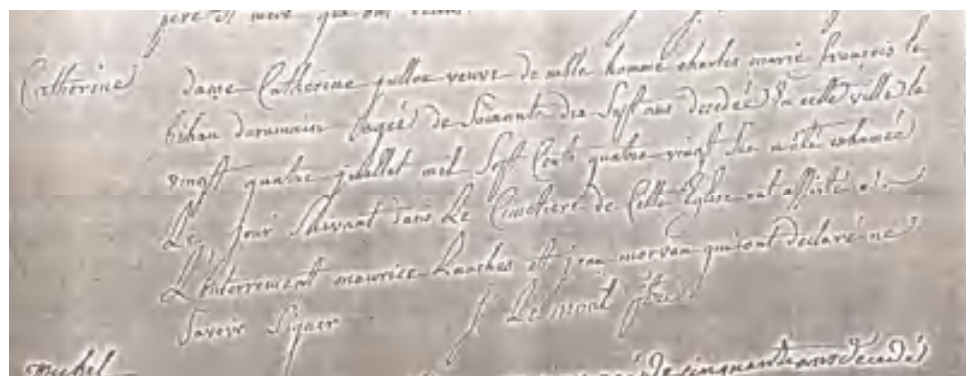 pere et mere qui ont
Catherine
dame Catherine guillou veuve de noble homme charles marie francois le
bihan agée de Soixante dix Sept ans decedée En cette ville le
vingt quatre juillet mil Sept Cents quatre vingt Six a été inhumée
Le Jour Suivant dans Le Cimetiere de Cette Eglise ont assisté a
L'enterrement maurice et jean morvan qui ont declaré ne
Savoir Signer
michel
de cinquante ans decedé